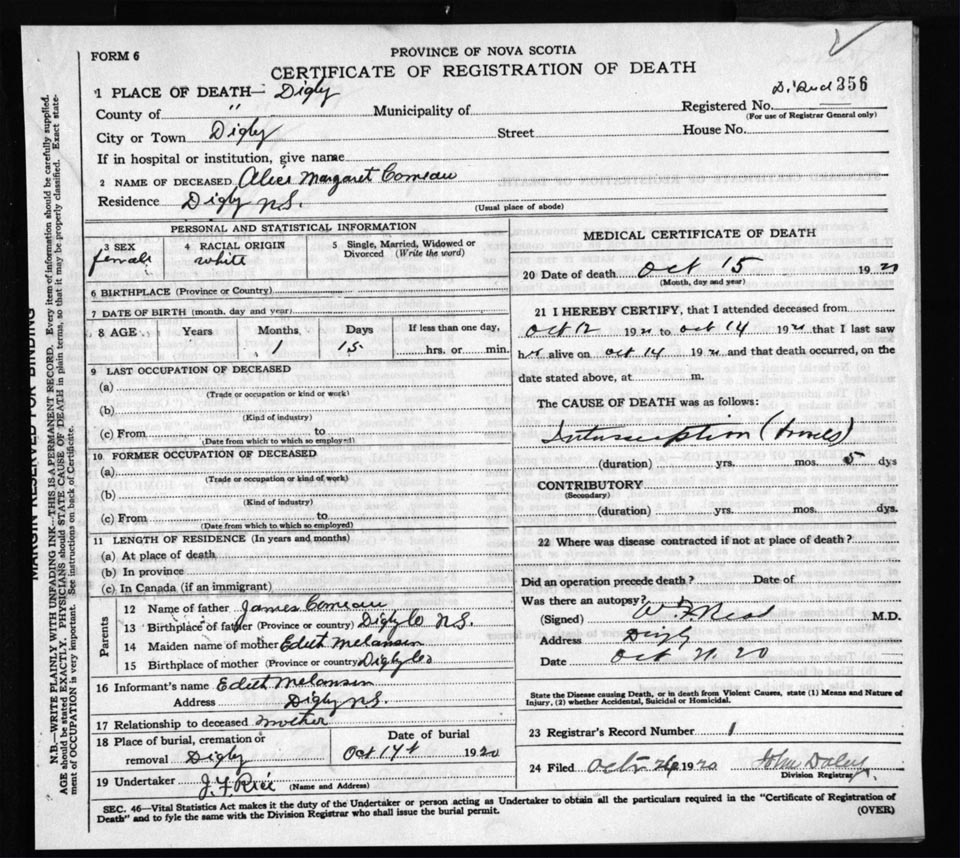 FORM 6
PROVINCE OF NOVA SCOTIA
CERTIFICATE OF REGISTRATION OF DEATH
1 PLACE OF DEATH— Digby
County of " Municipality of Registered No. 356
(For use of Registrar General only)
City or Town Digby Street House No.
If in hospital or institution, give name
2 NAME OF DECEASED Alice Margaret Comeau
Residence Digby N.S. (Usual place of abode)
PERSONAL AND STATISTICAL INFORMATION
3 SEX female
4 RACIAL ORIGIN white
5 Single, Married, Widowed or Divorced (Write the word)
6 BIRTHPLACE (Province or Country)
7 DATE OF BIRTH (month, day and year)
8 AGE Years Months Days If less than one day,
1 15 hrs. or min.
9 LAST OCCUPATION OF DECEASED
(a)
(Trade or occupation or kind or work)
(b)
(Kind of industry)
(c) From to
(Date from which to which so employed)
10 FORMER OCCUPATION OF DECEASED
(a)
(Trade or occupation or kind of work)
(b)
(Kind of industry)
(c) From to
(Date from which to which so employed)
11 LENGTH OF RESIDENCE (In years and months)
(a) At place of death
(b) In province
(c) In Canada (if an immigrant)
Parents
12 Name of father James Comeau
13 Birthplace of father (Province or country) Digby Co N.S.
14 Maiden name of mother Edith Melansin
15 Birthplace of mother (Province or country) Digby Co
16 Informant's name Edith Melansin
Address Digby N.S.
17 Relationship to deceased mother
18 Place of burial, cremation or removal Digby
Date of burial Oct 17 1920
19 Undertaker J. F. Rice (Name and Address)
MEDICAL CERTIFICATE OF DEATH
20 Date of death Oct 15 19 20
(Month, day and year)
21 I HEREBY CERTIFY, that I attended deceased from
Oct 12 19 to Oct 14 19 that I last saw
her alive on Oct 14 19 and that death occurred, on the
date stated above, at m.
The CAUSE OF DEATH was as follows:
Intussception
(duration) yrs. mos. 5 dys
CONTRIBUTORY
(Secondary)
(duration) yrs. mos. dys.
22 Where was disease contracted if not at place of death?
Did an operation precede death? Date of
Was there an autopsy?
(Signed) M.D.
Address Digby
Date Oct 21 20
State the Disease causing Death, or in death from Violent Causes, state (1) Means and Nature of
Injury, (2) whether Accidental, Suicidal or Homicidal.
23 Registrar's Record Number 1
24 Filed Oct 1920 John Daley
Division Registrar
SEC. 46—Vital Statistics Act makes it the duty of the Undertaker or person acting as Undertaker to obtain all the particulars required in the "Certificate of Registration of
Death" and to fyle the same with the Division Registrar who shall issue the burial permit. (OVER)
MARGIN RESERVED FOR BINDING
N.B.—WRITE PLAINLY WITH UNFADING INK—THIS IS A PERMANENT RECORD. Every item of information should be carefully supplied.
AGE should be stated EXACTLY. PHYSICIANS should STATE CAUSE OF DEATH in plain terms, so that it may be properly classified. Exact state-
ment of OCCUPATION is very important. See instructions on back of Certificate.